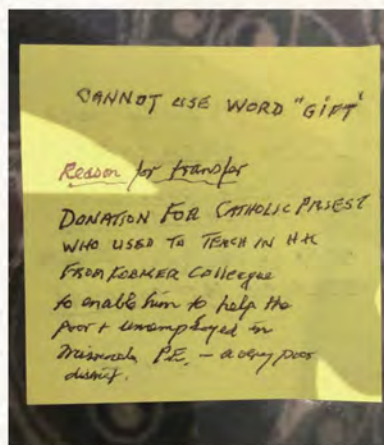 CANNOT USE WORD "GIFT"
Reason for transfer
DONATION FOR CATHOLIC PRIEST
WHO USED TO TEACH IN H.K
FROM FORMER Colleague
to enable him to help the
poor + unemployed in
P.E. – a very poor
district.